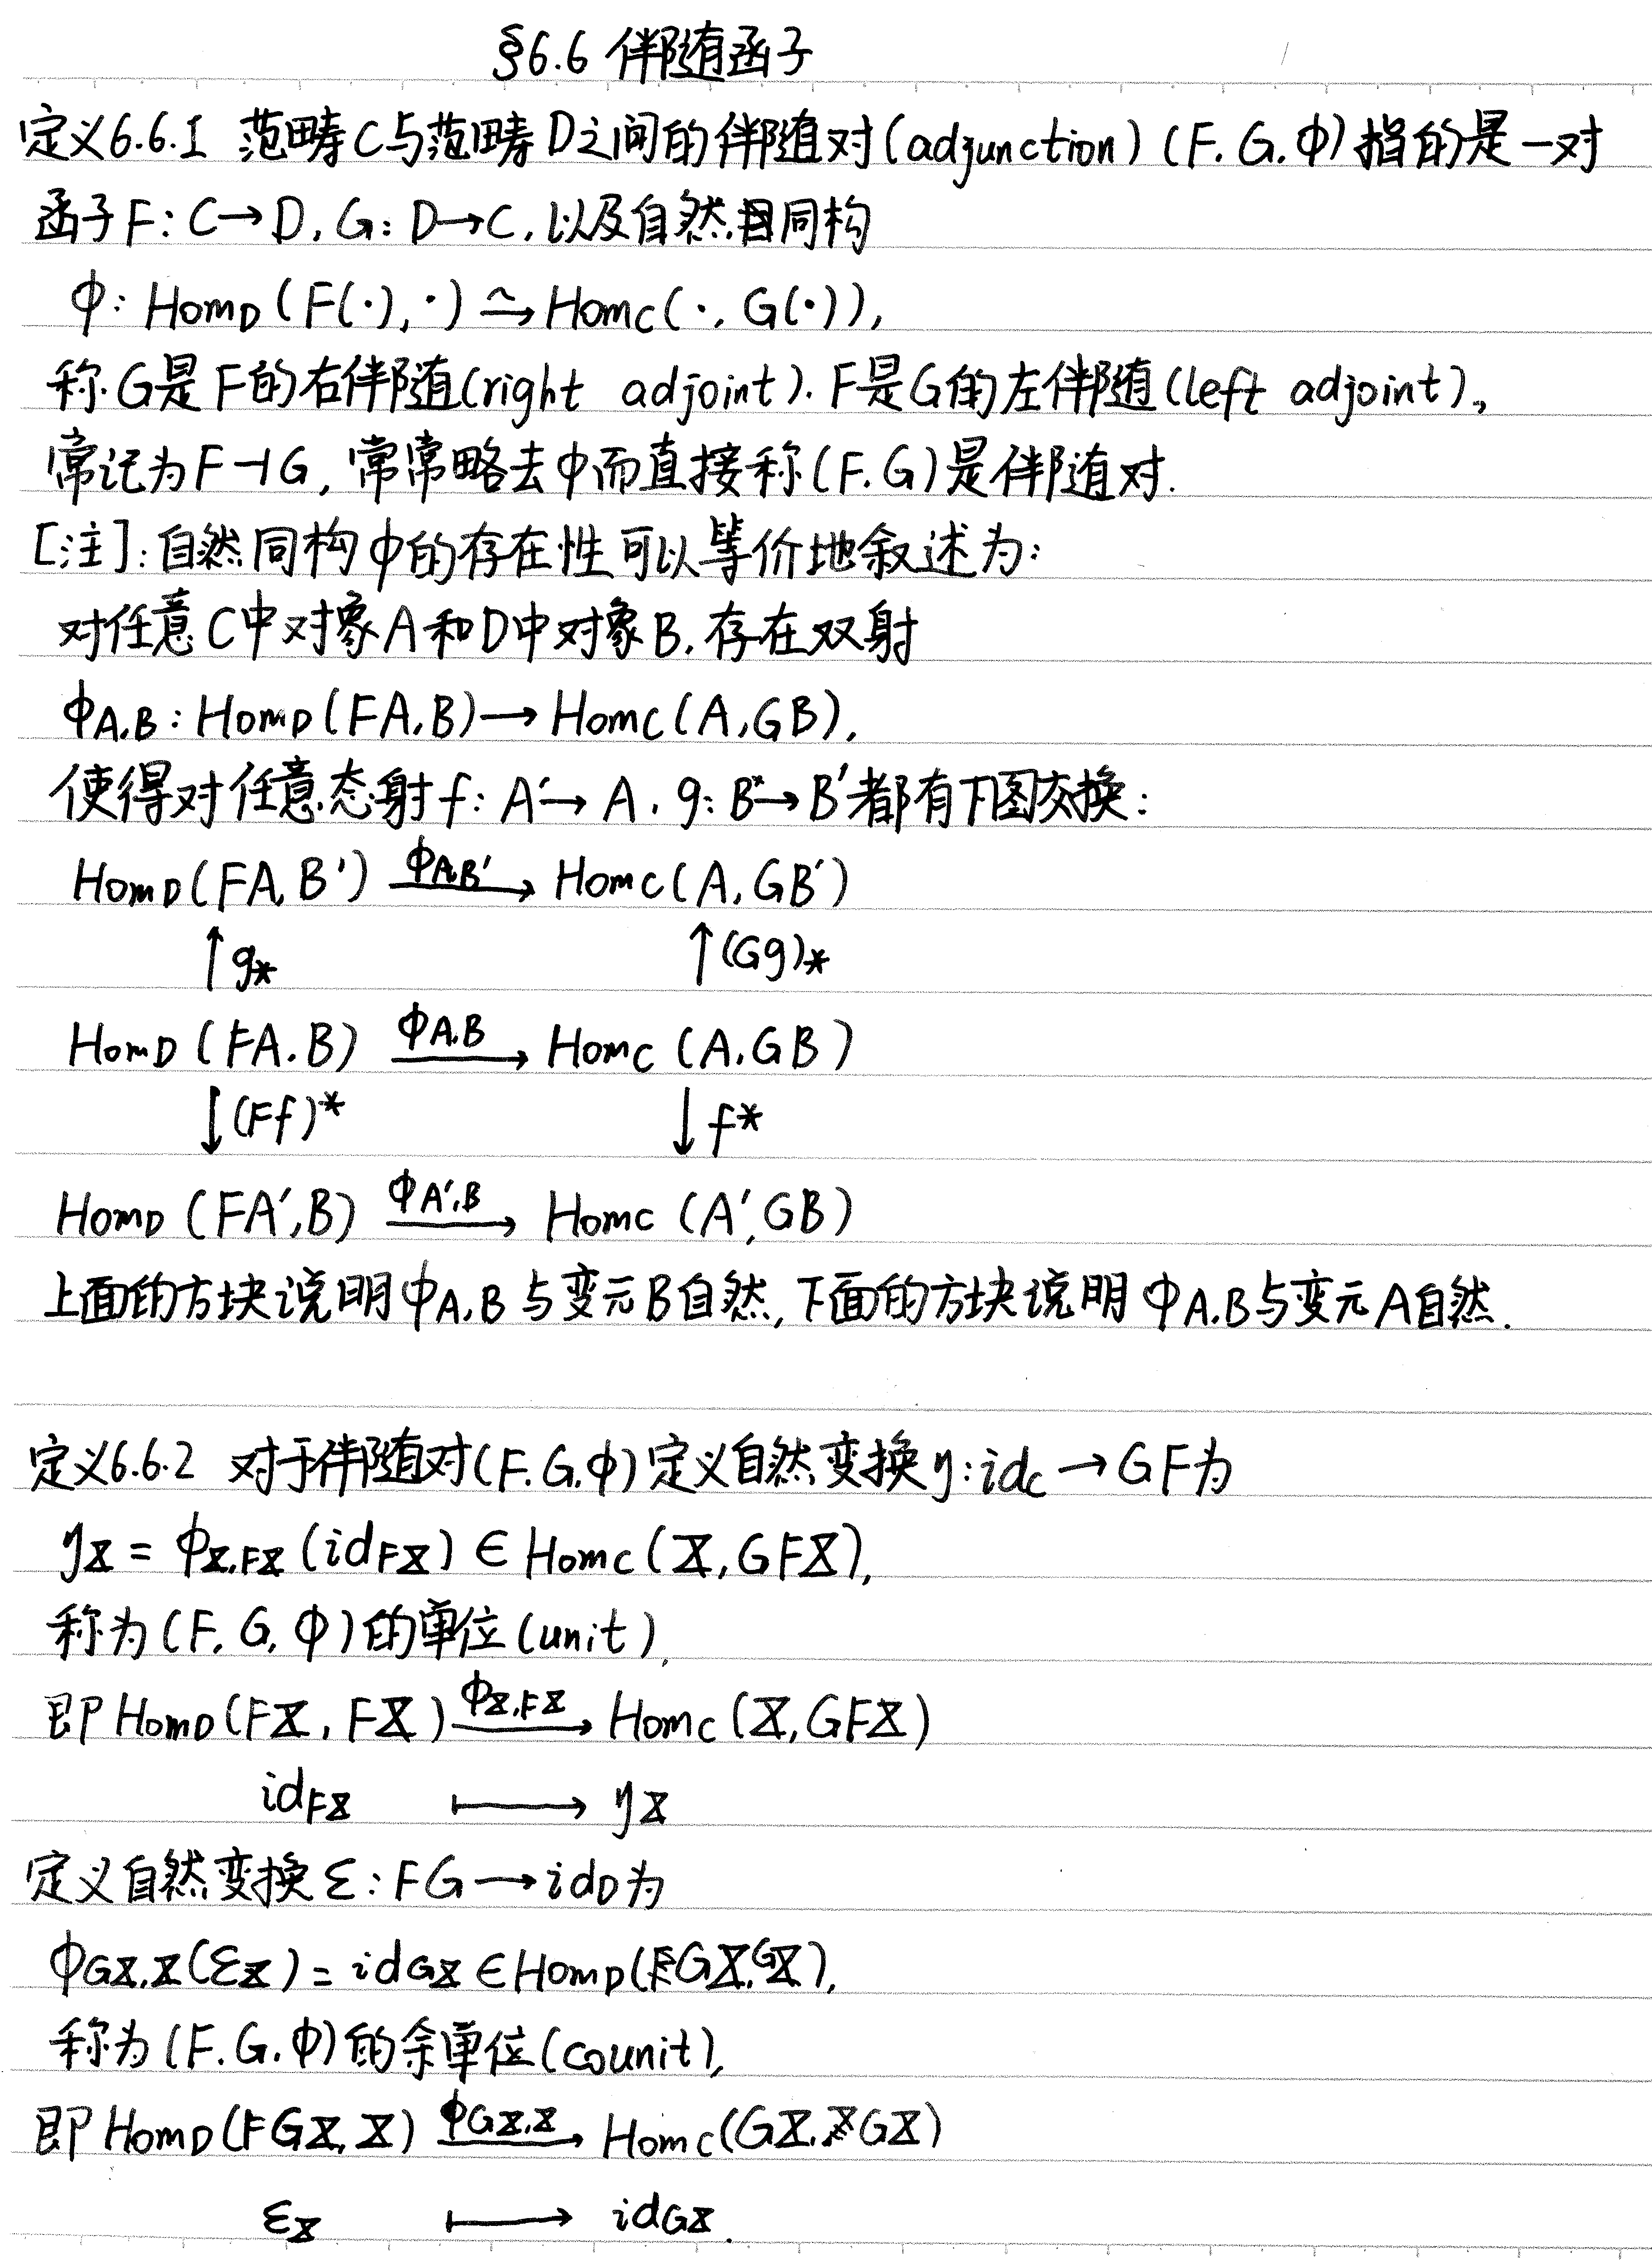 §6.6 伴随函子
定义6.6.1 范畴C与范畴D之间的伴随对(adjunction) (F. G. Φ) 指的是一对
函子F: C→D, G: D→C, 以及自然同构
Φ: HomD(F(·), ·) ⥲ HomC(·, G(·)),
称G是F的右伴随(right adjoint). F是G的左伴随(left adjoint),
常记为F⊣G, 常常略去Φ而直接称(F.G)是伴随对.
[注]: 自然同构Φ的存在性可以等价地叙述为:
对任意C中对象A和D中对象B, 存在双射
ΦA,B: HomD(FA,B)→HomC(A,GB),
使得对任意态射f: A'→A, g: B→B'都有下图交换:
HomD(FA,B') ΦA,B'→ HomC(A,GB')
↑g* ↑(Gg)*
HomD(FA.B) ΦA.B→ HomC(A.GB)
↓(Ff)* ↓f*
HomD(FA',B) ΦA',B→ HomC(A',GB)
上面的方块说明ΦA,B与变元B自然, 下面的方块说明ΦA.B与变元A自然.
定义6.6.2 对于伴随对(F.G.Φ)定义自然变换η: idC→GF为
ηX = ΦX,FX(idFX) ∈ HomC(X,GFX),
称为(F, G, Φ)的单位(unit),
即HomD(FX, FX) ΦX,FX→ HomC(X,GFX)
idFX ⟼ ηX
定义自然变换ε: FG→idD为
ΦGX,X(εX) = idGX ∈ HomD(GX,GX),
称为(F.G.Φ)的余单位(counit),
即HomD(FGX,X) ΦGX,X→ HomC(GX,GX)
εX ⟼ idGX.